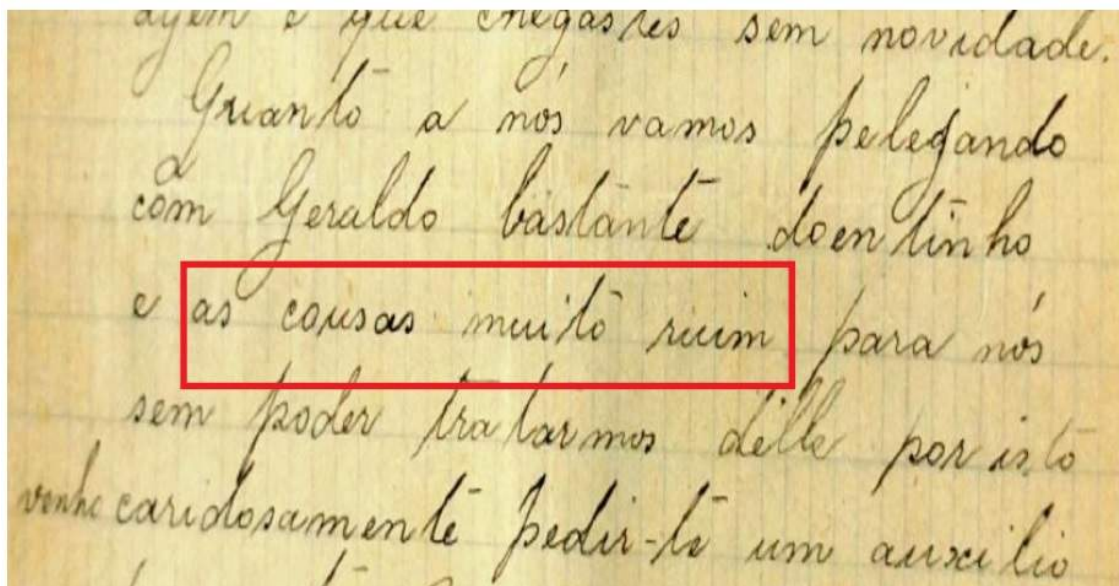 agem e que chegastes sem novidade.
Quanto a nós vamos pelejando
com Geraldo bastante doentinho
e as cousas muito ruim para nós
sem poder tratarmos delle por isto
venho caridosamente pedir-te um auxilio